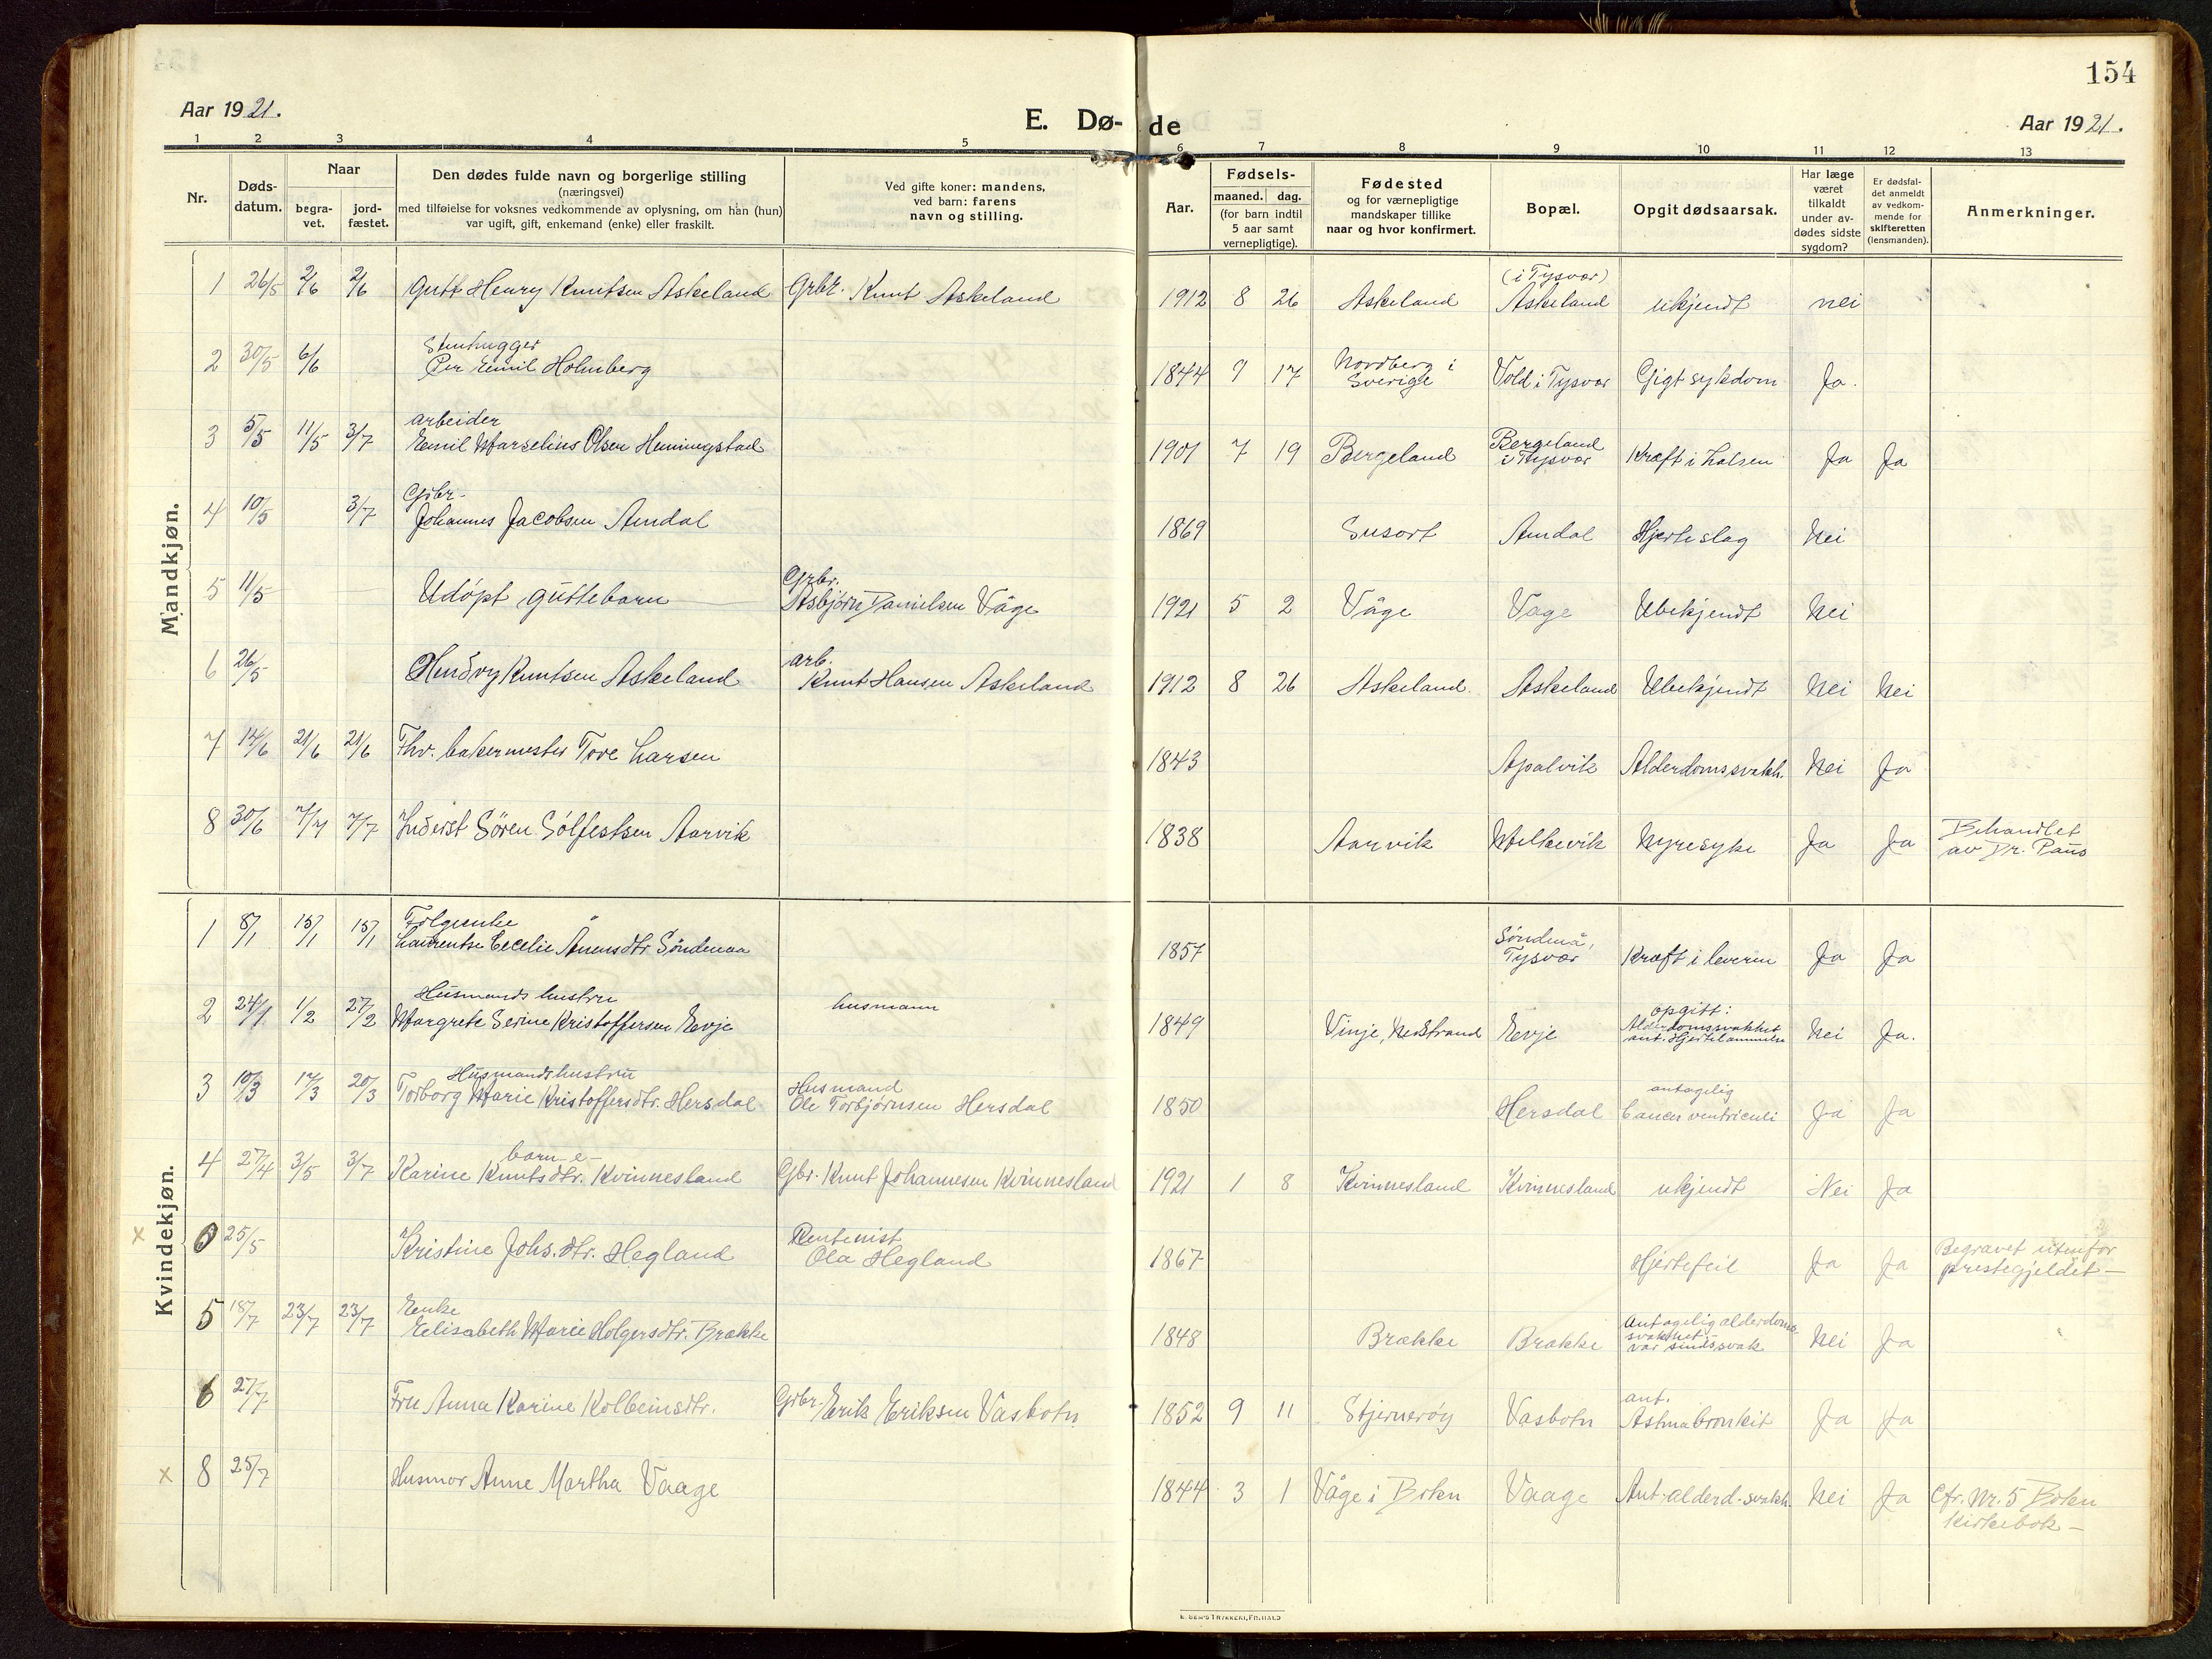 154
Aar 1921.
E. Dø-
de
Aar 1921.
1 2 3 4 5 6 7 8 9 10 11 12 13
Nr.
Døds-
datum.
Naar
begra-
vet.
jord-
fæstet.
Den dødes fulde navn og borgerlige stilling
(næringsvei)
med tilføielse for voksnes vedkommende av oplysning, om han (hun)
var ugift, gift, enkemand (enke) eller fraskilt.
Ved gifte koner: mandens,
ved barn: farens
navn og stilling.
Aar.
Fødsels-
maaned. dag.
(for barn indtil
5 aar samt
vernepligtige).
Fødested
og for værnepligtige
mandskaper tillike
naar og hvor konfirmert.
Bopæl.
Opgit dødsaarsak.
Har læge
været
tilkaldt
under av-
dødes sidste
sygdom?
Er dødsfal-
det anmeldt
av vedkom-
mende for
skifteretten
(lensmanden).
Anmerkninger.
Mandkjøn.
1 26/5 2/6 2/6 Gutt Henry Knutsen Askeland Grbr. Knut Askeland 1912 8 26 Askeland (i Tysvær) Askeland ukjendt nei
2 30/5 6/6 Stenhugger
Per Emil Holmberg 1844 9 17 Nordberg i
Sverige Vold i Tysvær Gigtsykdom Ja.
3 5/5 11/5 3/7 arbeider
Emil Marselius Olsen Hemmingstad 1901 7 19 Bergeland Bergeland
i Tysvær Kræft i halsen Ja Ja
4 10/5 3/7 Grbr.
Johannes Jacobsen Amdal 1869 Susort Amdal Hjerteslag Nei
5 11/5 Udöpt guttebarn Grbr.
Asbjörn Danielsen Våge 1921 5 2 Våge Vage Ubekjendt Nei
6 26/5 Knutsen Askeland arb.
Knut Hansen Askeland 1912 8 26 Askeland Askeland Ubekjendt Nei Nei
7 14/6 21/6 21/6 Fhv. bakermester Tore Larsen 1843 Apalvik Alderdomssvakh. Nei Ja
8 30/6 7/7 7/7 Inderst Sören Sölfestsen Aarvik 1838 Aarvik Melkevik Nyresyke Ja Ja Behandlet
av Dr. Paus
Kvindekjøn.
1 8/1 15/1 15/1 Folgeenke
Laurentse Cecelie Ånensdtr. Söndenaa 1857 Söndenå,
Tysvær Kræft i leveren Ja Ja
2 24/1 1/2 27/2 Husmands hustru
Margrete Serine Kristoffersen Eevje husmann 1849 Vinje, Nedstrand Eevje opgitt:
Alderdomssvakhet
ant. Hjertelammelse Nei Ja.
3 10/3 17/3 20/3 Husmandshustru
Torborg Marie Kristoffersdtr. Hersdal Husmand
Ole Torbjørnsen Hersdal 1850 Hersdal antagelig
Cancer ventriculi Ja Ja
4 27/4 3/5 3/7 barn e-
Karine Knutsdtr. Kvinnesland Gbr. Knut Johannesen Kvinnesland 1921 1 8 Kvinnesland Kvinnesland ukjendt Nei Ja
x 25/5 Kristine Johs.dtr. Hegland Rentenist
Ola Hegland 1867 Hjertefeil Ja Ja Begravet utenfor
prestegjeldet-
5 18/7 23/7 23/7 Enke
Elisabeth Marie Holgersdtr. Brække 1848 Brække Brække Antagelig alderdoms-
svakhet -
var sindssvak Nei Ja
6 27/7 Fru Anna Karine Kolbeinsdtr. Grbr. Erik Eriksen Vasbotn 1852 9 11 Stjernerøy Vasbotn ant.
Astma bronkit Ja Ja
x 8 25/7 Husmor Anne Martha Vaage 1844 3 1 Våge i Bokn Vaage Ant. alderd. svakh. Nei Ja Cfr. Nr. 5 Bokn
kirkebok-
E. SEM'S TRYKKERI, FR.HALD